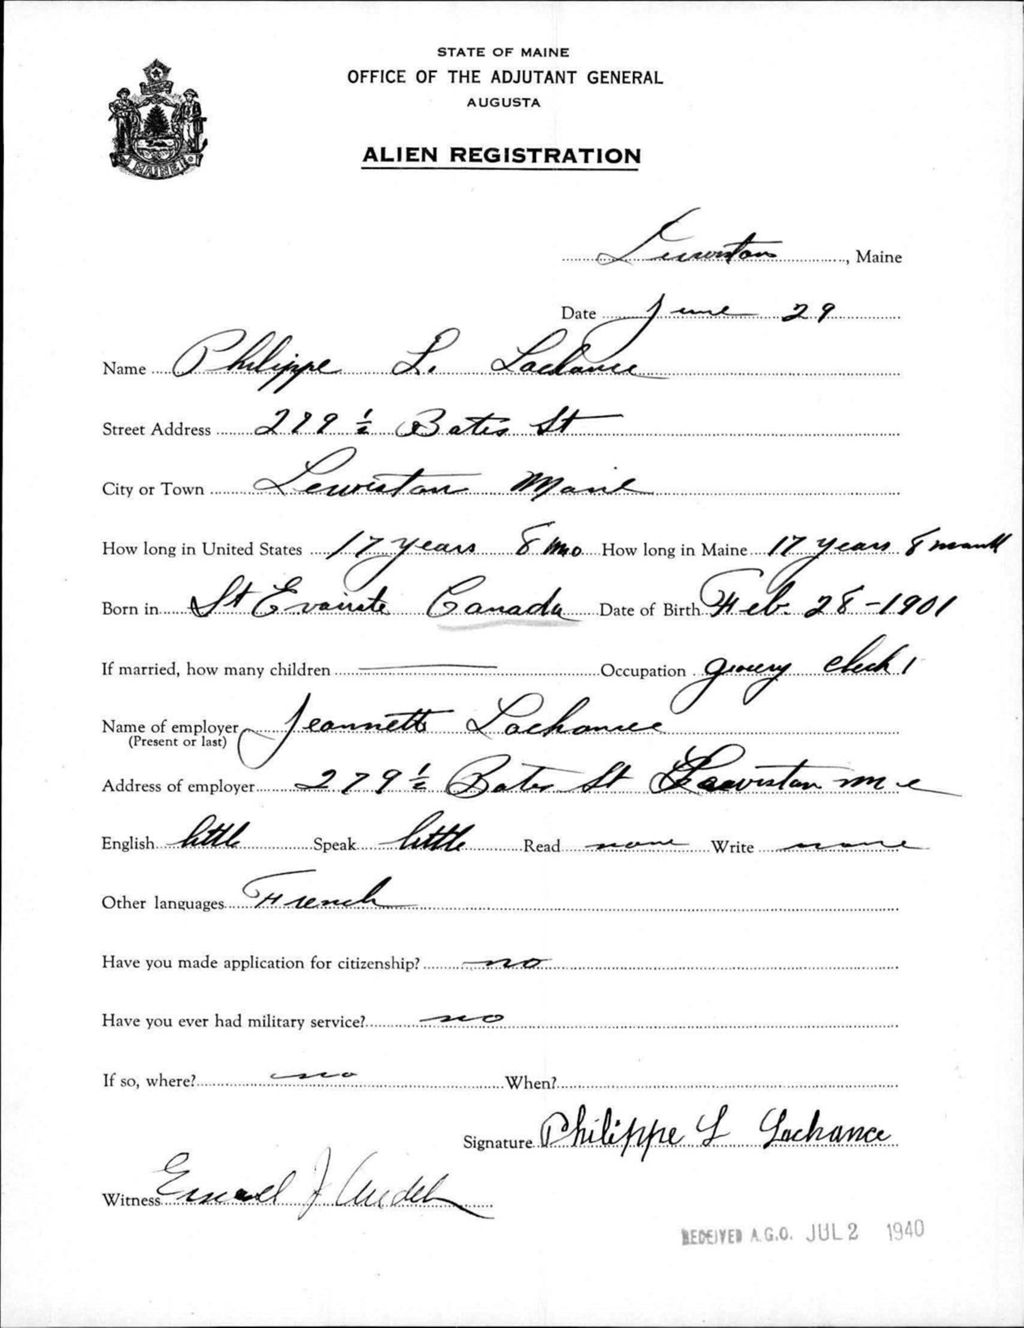 STATE OF MAINE
OFFICE OF THE ADJUTANT GENERAL
AUGUSTA
ALIEN REGISTRATION
MAINE
Lewiston, Maine
Date June 29
Name Philippe L. Lachance
Street Address 279 1/2 Bates St
City or Town Lewiston Maine
How long in United States 17 years 8 mo How long in Maine 17 years 8 month
Born in St Evariste Canada Date of Birth Feb. 28-1901
If married, how many children Occupation grocery clerk
Name of employer Jeannette Lachance
(Present or last)
Address of employer 279 1/2 Bates St Lewiston me
English little Speak little Read none Write none
Other languages French
Have you made application for citizenship? no
Have you ever had military service? no
If so, where? no When?
Signature Philippe L Lachance
Witness J
RECEIVED A.G.O. JUL 2 1940